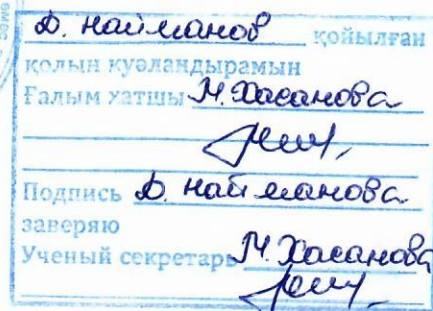 Д. Найманов қойылған
қолын куәландырамын
Ғалым хатшы М. Хасанова
Подпись Д. Найманова
заверяю
Ученый секретарь М. Хасанова